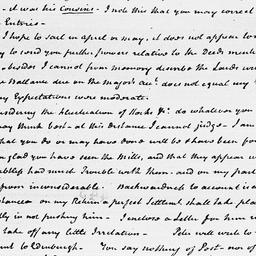 - it was his Cousins - I note this that you may correct
Entries -
I hope to sail in april or may, it does not appear to
to send you further powers relative to the Deeds
besides I cannot from memory describe the Lands
Ballance due on the Major's acct. does not equal my
Expectations were moderate.
the fluctuation of Stocks &c. do whatever you
may think best - at this distance I cannot judge - I am
that you do or may have done will be shews been for
glad you have seen the Mills, and that they appear
had much Trouble with them - and on my part
from inconsiderable. Backwardness to account is a
on my Return a perfect Settlemt. shall take place
is not pushing him - I inclose a Letter for him
take off any little Irritation - Peter will write to
to Edinburgh - You say nothing of Post - nor of